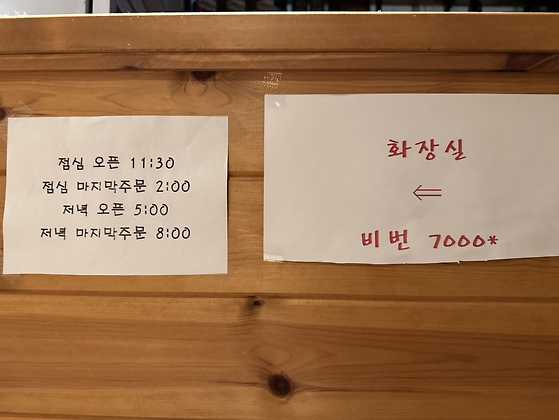 점심 오픈 11:30
점심 마지막주문 2:00
저녁 오픈 5:00
저녁 마지막주문 8:00
화장실
⇐
비번 7000*